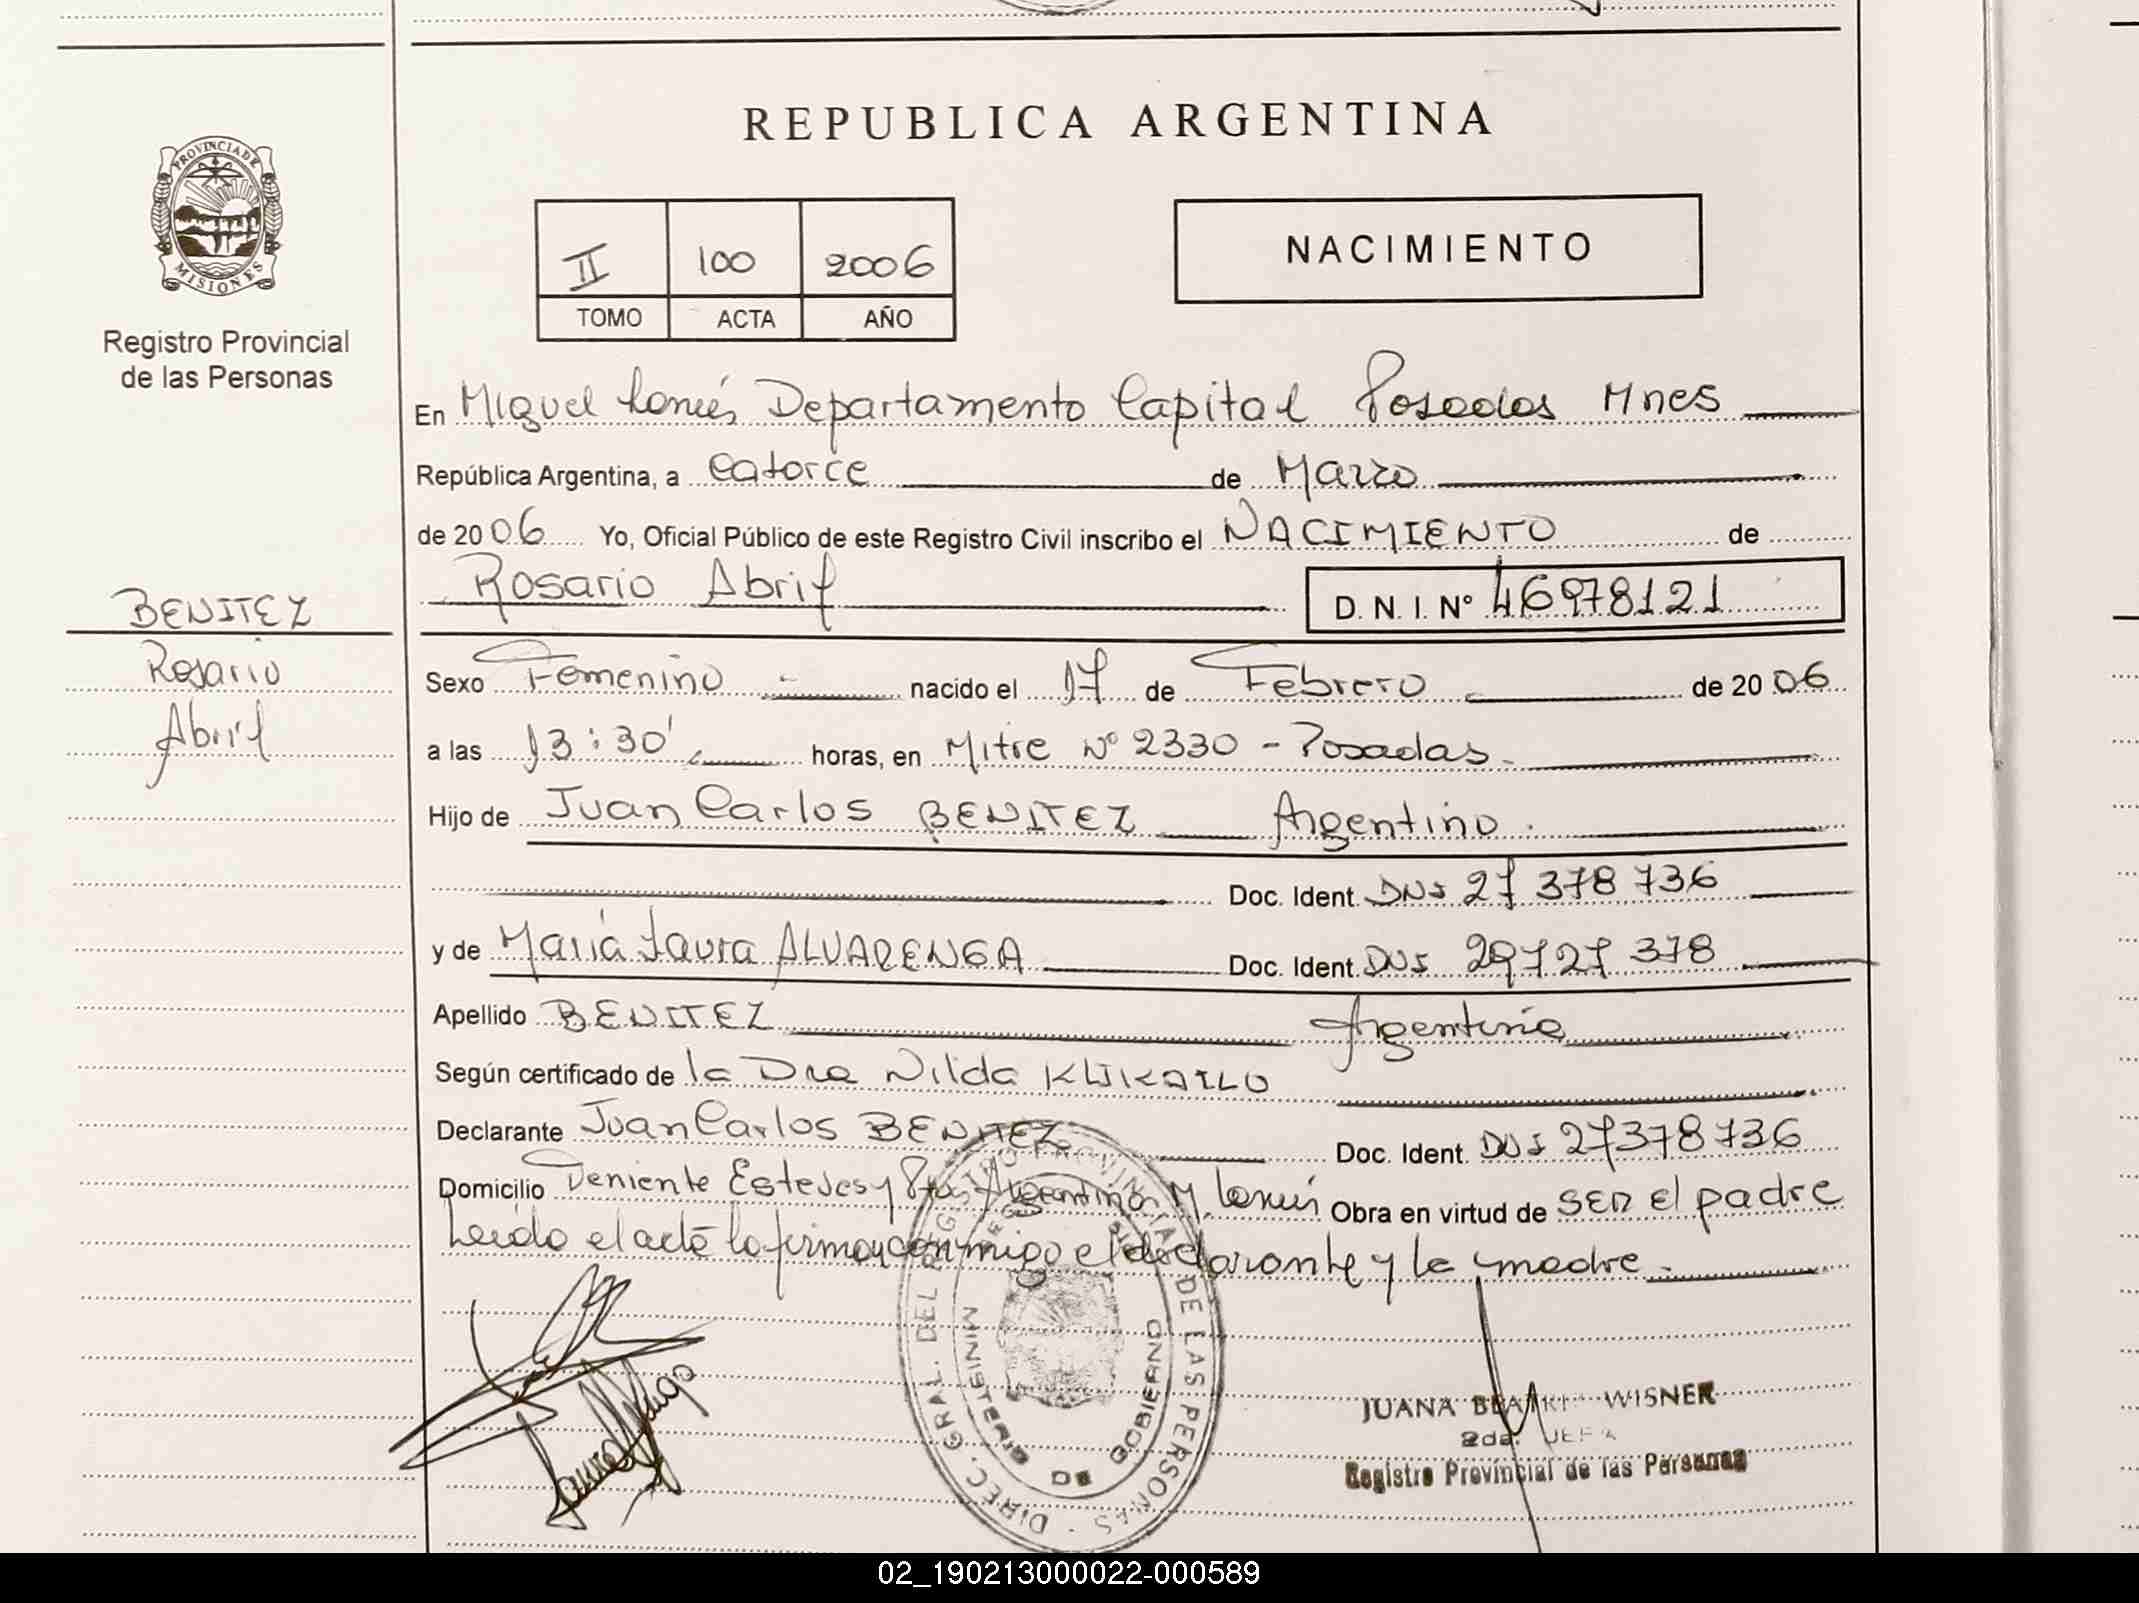 REPUBLICA ARGENTINA
PROVINCIA DE MISIONES
Registro Provincial
de las Personas
II 100 2006
TOMO ACTA AÑO
NACIMIENTO
En Miguel Lanús Departamento Capital Posadas Mnes
República Argentina, a Catorce de Marzo
de 2006 Yo, Oficial Público de este Registro Civil inscribo el NACIMIENTO de
Rosario Abril D. N. I. Nº 46978121
BENITEZ
Rosario
Abril
Sexo Femenino nacido el 17 de Febrero de 2006
a las 13:30' horas, en Mitre Nº 2330 - Posadas.
Hijo de Juan Carlos BENITEZ Argentino.
Doc. Ident. DNI 27 378 736
y de María Laura ALVARENGA Doc. Ident. DNI 29727 378
Apellido BENITEZ Argentina
Según certificado de la Dra Nilda
Declarante Juan Carlos BENITEZ Doc. Ident. DNI 27378736
Domicilio Teniente Esteves y Argentinos M. Lanús Obra en virtud de SER el padre
Leído el acta la firman conmigo el declarante y la madre.
DIREC. GRAL. DEL REGISTRO PROVINCIAL DE LAS PERSONAS
MINISTERIO DE GOBIERNO
JUANA BEATRIZ WISNER
2da. JEFA
Registro Provincial de las Personas
02_190213000022-000589